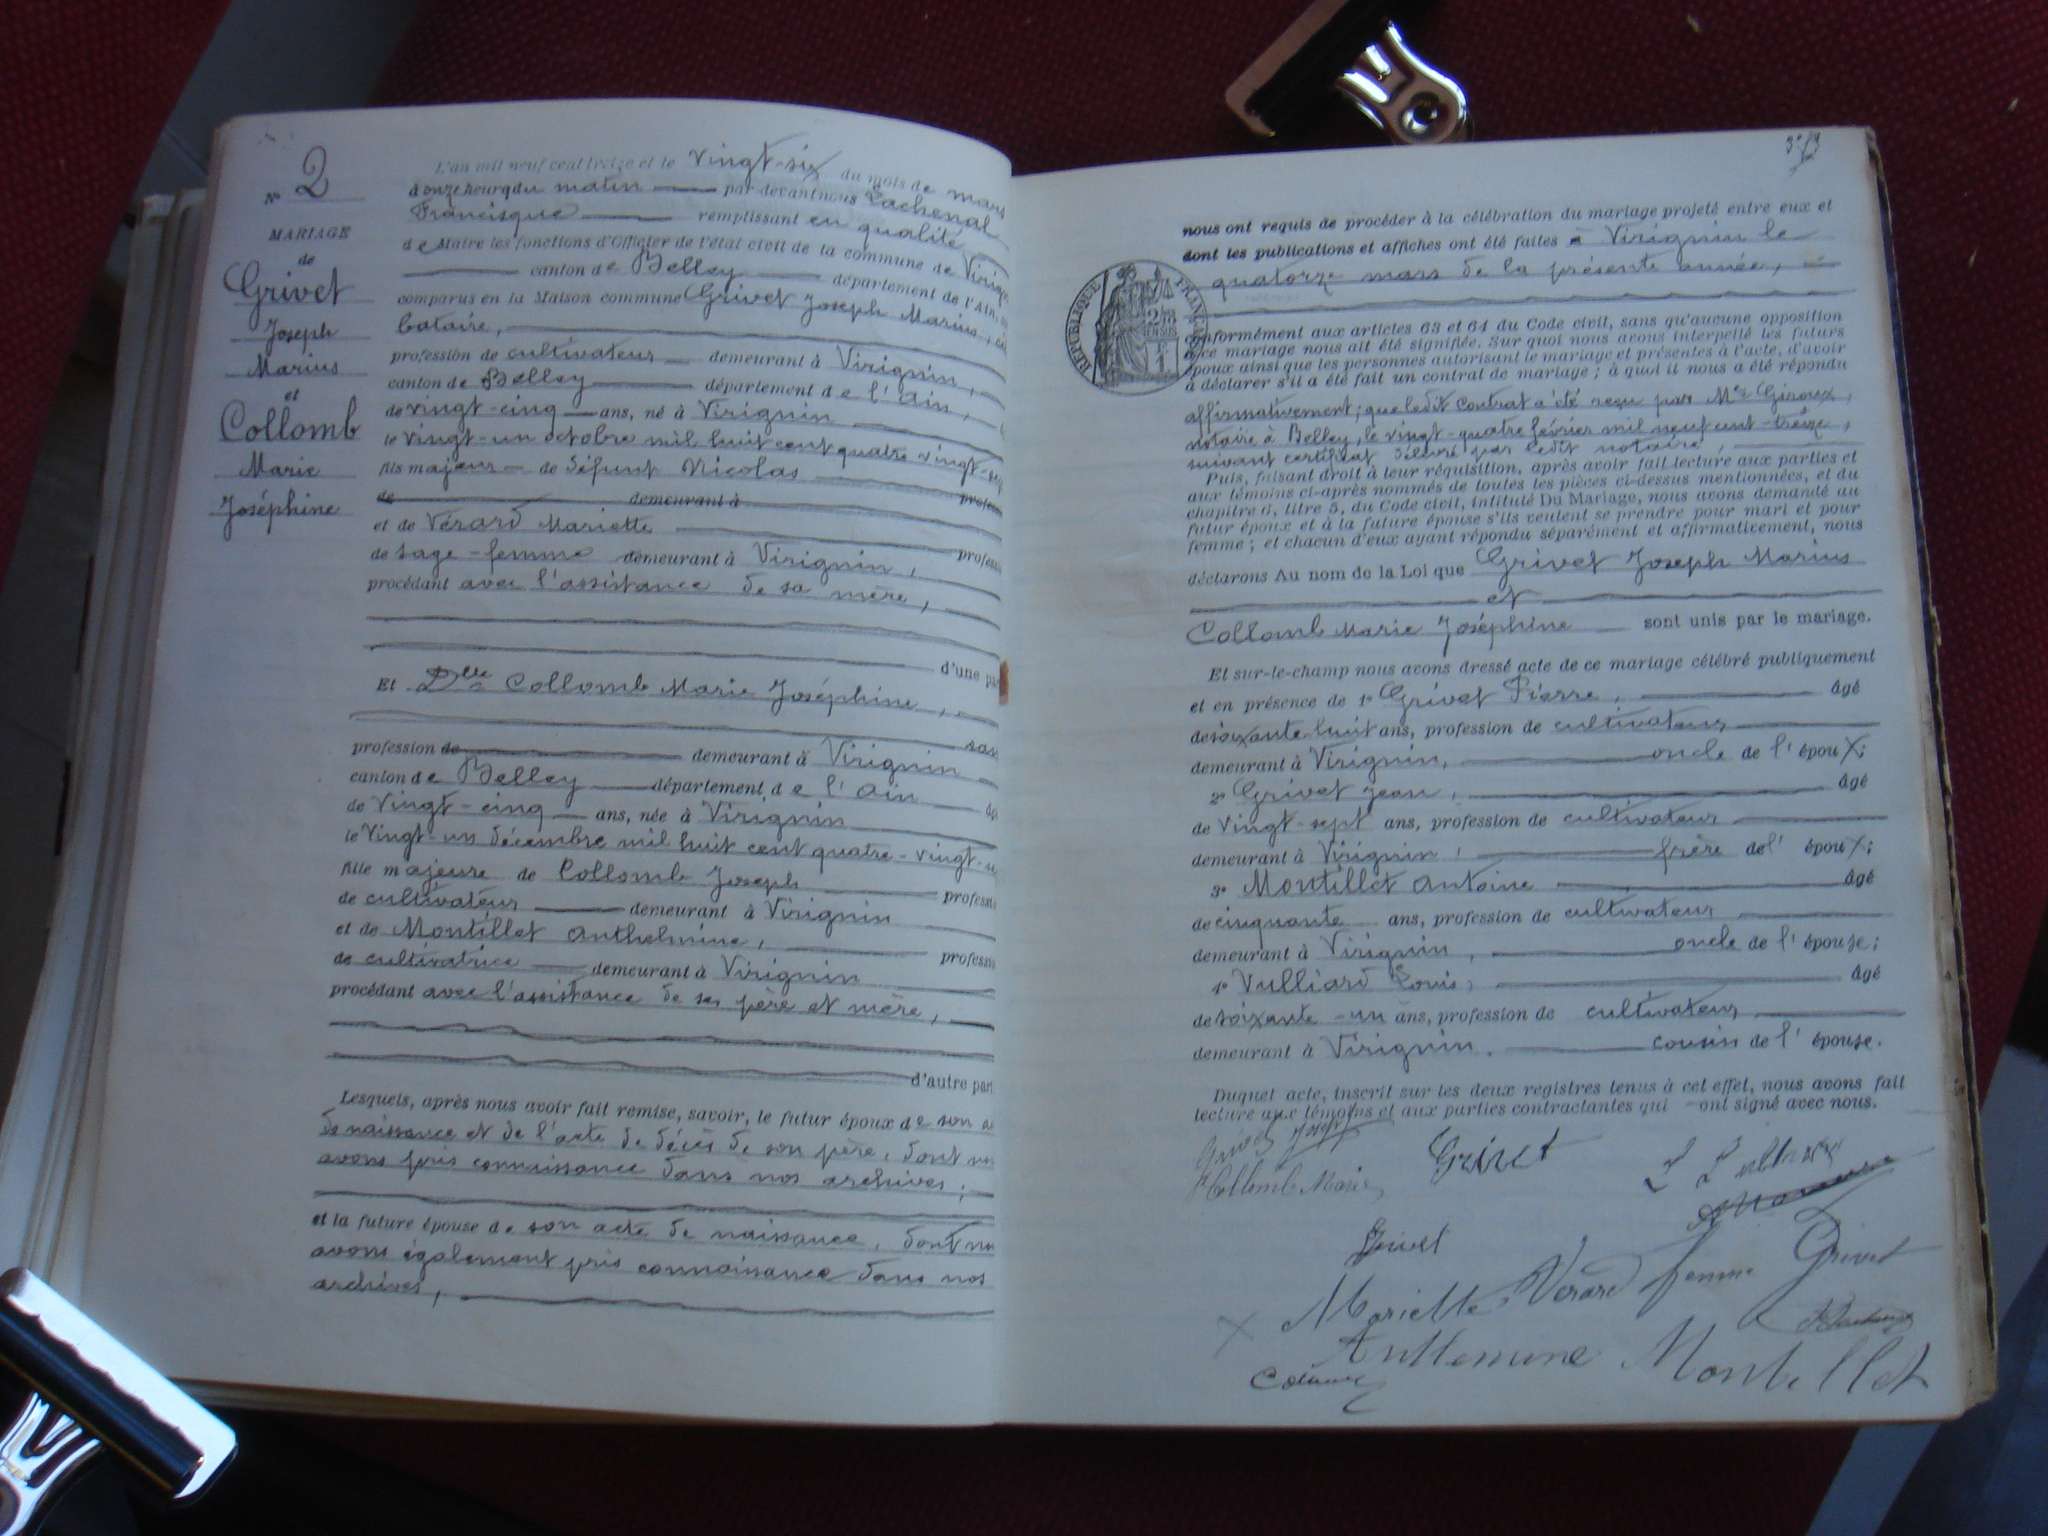 N° 2
MARIAGE
de
Grivet
Joseph
Marius
et
Collomb
Marie
Joséphine
L'an mil neuf cent treize et le vingt-six du mois de mars
à onze heures du matin par devant nous Lachenal
Francisque remplissant en qualité
de Maire les fonctions d'Officier de l'état civil de la commune de
canton de Belley département de l'Ain,
comparus en la Maison commune Grivet Joseph Marius,
bataire,
profession de cultivateur demeurant à Virignin,
canton de Belley département de l'Ain,
de vingt-cinq ans, né à Virignin
le vingt-un octobre mil huit cent quatre vingt-sep
fils majeur de défunt Nicolas
de demeurant à profess
et de Vérard Mariette
de sage-femme demeurant à Virignin, profess
procédant avec l'assistance de sa mère,
d'une par
Et Dlle Collomb Marie Joséphine,
san
profession de demeurant à Virignin
canton de Belley département de l'Ain
de vingt-cinq ans, née à Virignin
le vingt-un décembre mil huit cent quatre-vingt-
fille majeure de Collomb Joseph professi
de cultivateur demeurant à Virignin
et de Montillet Anthelmine, professi
de cultivatrice demeurant à Virignin
procédant avec l'assistance de ses père et mère,
d'autre part
Lesquels, après nous avoir fait remise, savoir, le futur époux de son a
de naissance et de l'acte de décès de son père, dont no
avons pris connaissance dans nos archives;
et la future épouse de son acte de naissance, dont no
avons également pris connaissance dans nos
archives,
nous ont requis de procéder à la célébration du mariage projeté entre eux et
dont les publications et affiches ont été faites à Virignin le
quatorze mars de la présente année,
RÉPUBLIQUE FRANÇAISE
conformément aux articles 63 et 64 du Code civil, sans qu'aucune opposition
à ce mariage nous ait été signifiée. Sur quoi nous avons interpellé les futurs
époux ainsi que les personnes autorisant le mariage et présentes à l'acte, d'avoir
à déclarer s'il a été fait un contrat de mariage; à quoi il nous a été répondu
affirmativement; que ledit contrat a été reçu par Me Giroux,
notaire à Belley, le vingt-quatre février mil neuf cent-treize,
suivant certificat délivré par ledit notaire,
Puis, faisant droit à leur réquisition, après avoir fait lecture aux parties et
aux témoins ci-après nommés de toutes les pièces ci-dessus mentionnées, et du
chapitre 6, titre 5, du Code civil, intitulé Du Mariage, nous avons demandé au
futur époux et à la future épouse s'ils veulent se prendre pour mari et pour
femme; et chacun d'eux ayant répondu séparément et affirmativement, nous
déclarons Au nom de la Loi que Grivet Joseph Marius
et
Collomb Marie Joséphine sont unis par le mariage.
Et sur-le-champ nous avons dressé acte de ce mariage célébré publiquement
et en présence de 1° Grivet Pierre, âgé
de soixante-huit ans, profession de cultivateur
demeurant à Virignin, oncle de l'époux;
2° Grivet Jean, âgé
de vingt-sept ans, profession de cultivateur
demeurant à Virignin, frère de l'époux;
3° Montillet Antoine âgé
de cinquante ans, profession de cultivateur
demeurant à Virignin, oncle de l'épouse;
4° Vulliard Louis, âgé
de soixante-un ans, profession de cultivateur
demeurant à Virignin. cousin de l'épouse.
Duquel acte, inscrit sur les deux registres tenus à cet effet, nous avons fait
lecture aux témoins et aux parties contractantes qui ont signé avec nous.
Grivet Joseph Grivet
Collomb Marie
Grivet
Mariette Vérard femme Grivet
Anthemine Montillet